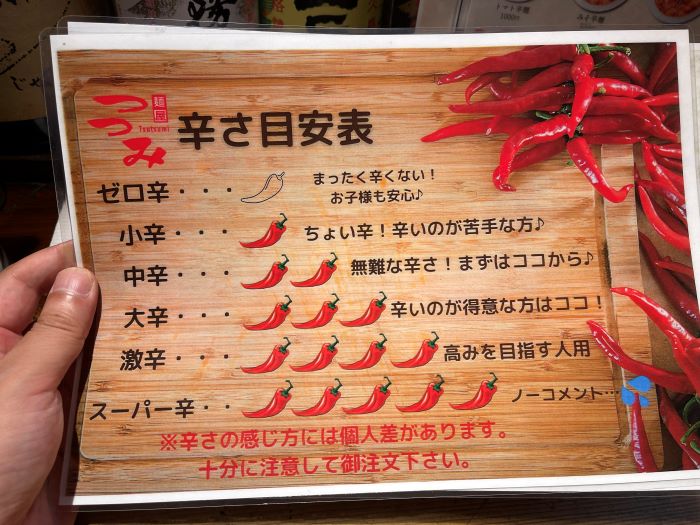 トマト辛麺
1000円
みそ辛麺
麺屋
つつみ
Tsutsumi
辛さ目安表
ゼロ辛・・・ まったく辛くない！
お子様も安心♪
小辛・・・ ちょい辛！辛いのが苦手な方♪
中辛・・・ 無難な辛さ！まずはココから♪
大辛・・・ 辛いのが得意な方はココ！
激辛・・・ 高みを目指す人用
スーパー辛・・ ノーコメント…
※辛さの感じ方には個人差があります。
十分に注意して御注文下さい。